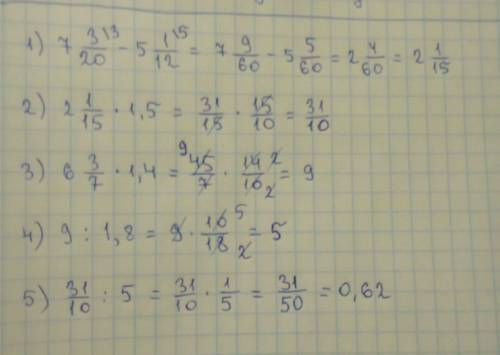 1) 7 3\3/20 - 5 1\5/12 = 7 9/60 - 5 5/60 = 2 4/60 = 2 1/15
2) 2 1/15 · 1,5 = 31/15 · 15/10 = 31/10
3) 6 3/7 · 1,4 = 9 45/7 · 14 2/10 2 = 9
4) 9 : 1,8 = 9 · 10 5/18 2 = 5
5) 31/10 : 5 = 31/10 · 1/5 = 31/50 = 0,62